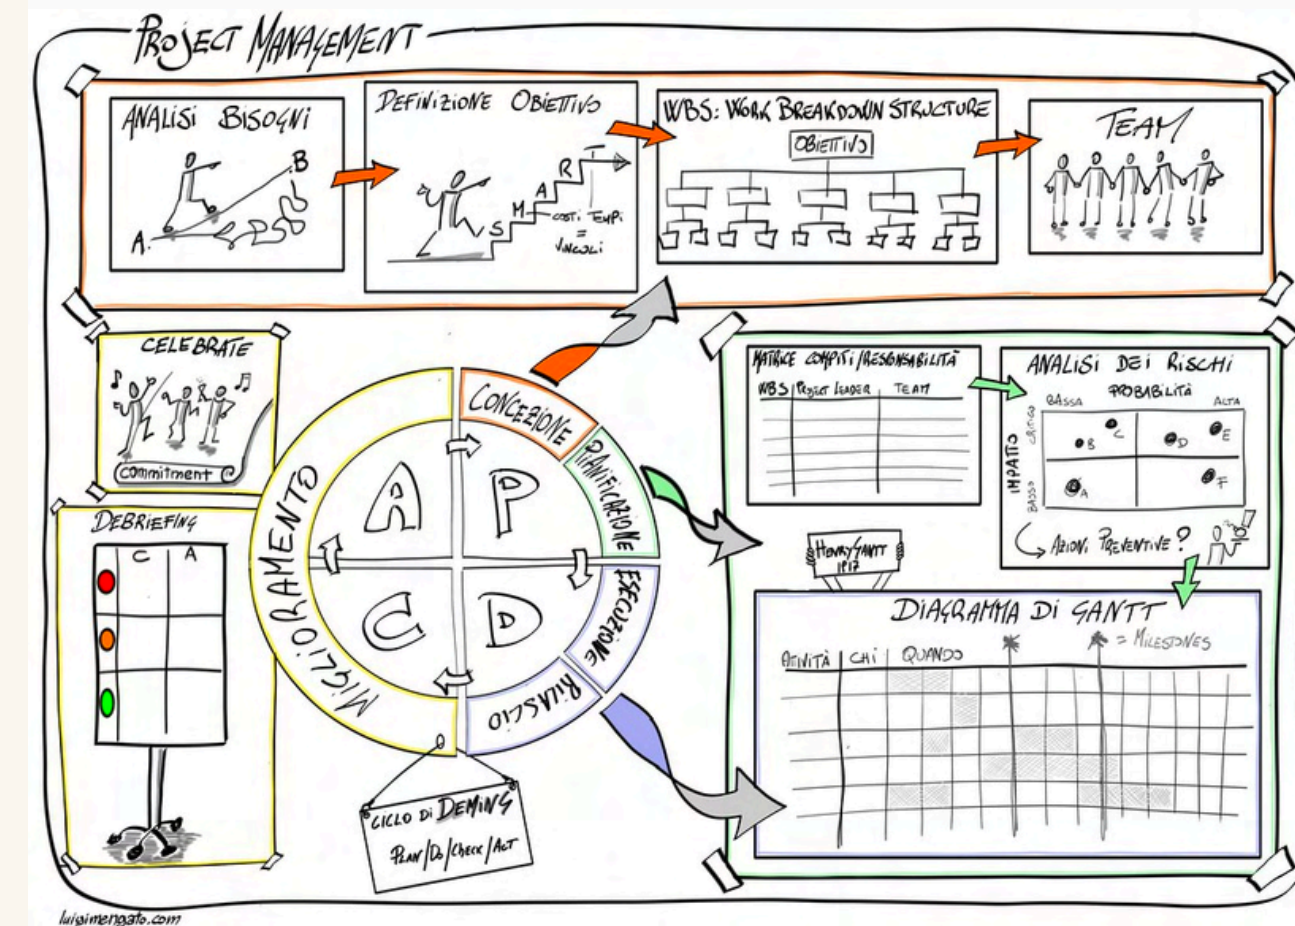 PROJECT MANAGEMENT
ANALISI BISOGNI
B
A.
DEFINIZIONE OBIETTIVO
S
M
A
R
T
COSTI TEMPI
=
VINCOLI
WBS: WORK BREAKDOWN STRUCTURE
OBIETTIVO
TEAM
CELEBRATE
commitment
DEBRIEFING
C A
MIGLIORAMENTO
CONCEZIONE
PIANIFICAZIONE
ESECUZIONE
RILASCIO
A P
C D
CICLO DI DEMING
PLAN/DO/CHECK/ACT
MATRICE COMPITI/RESPONSABILITÀ
WBS PROJECT LEADER TEAM
ANALISI DEI RISCHI
PROBABILITÀ
BASSA ALTA
IMPATTO
CRITICO
BASSO
B
C
D
E
A
F
AZIONI PREVENTIVE?
HENRY GANTT
1917
DIAGRAMMA DI GANTT
= MILESTONES
ATTIVITÀ CHI QUANDO
luigimengato.com